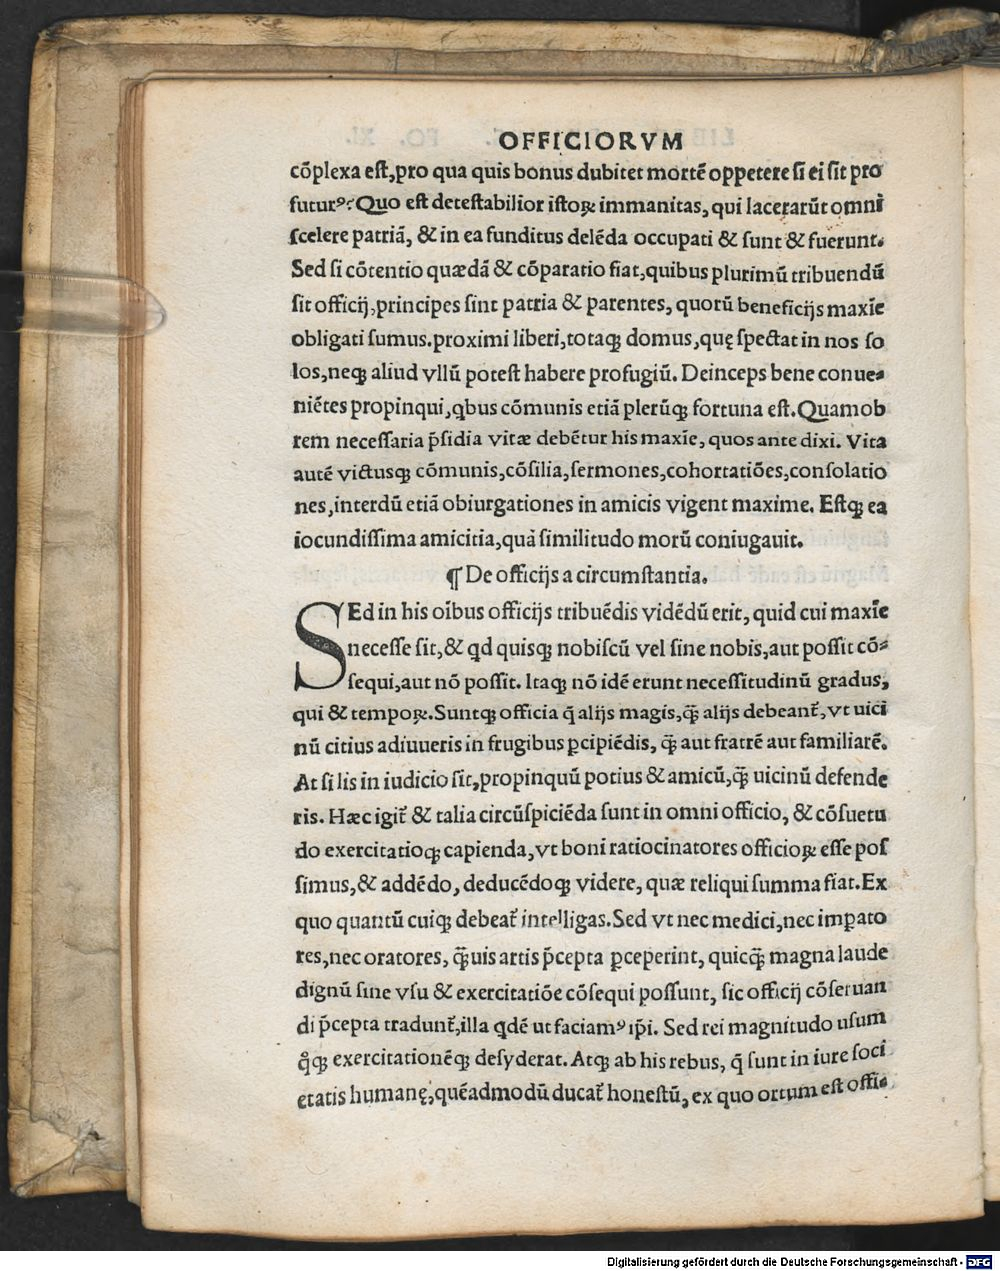 OFFICIORVM
cõplexa est,pro qua quis bonus dubitet mortẽ oppetere si ei sit pro
futurꝰ? Quo est detestabilior istoꝝ immanitas, qui lacerarũt omnĩ
scelere patriã, & in ea funditus delẽda occupati & sunt & fuerunt.
Sed si cõtentio quædã & cõparatio fiat,quibus plurimũ tribuendũ
sit officij,principes sint patria & parentes, quorũ beneficijs maxĩe
obligati sumus.proximi liberi,totaqꝫ domus,quę spectat in nos so
los,neqꝫ aliud vllũ potest habere profugiũ. Deinceps bene conue⸗
niẽtes propinqui,qbus cõmunis etiã plerũqꝫ fortuna est.Quamob
rem necessaria p̃sidia vitæ debẽtur his maxĩe, quos ante dixi. Vita
autẽ victusqꝫ cõmunis,cõsilia,sermones,cohortatiões,consolatio
nes,interdũ etiã obiurgationes in amicis vigent maxime. Estqꝫ ea
iocundissima amicitia,quã similitudo morũ coniugauit.
¶ De officijs a circumstantia.
SEd in his oĩbus officijs tribuẽdis vidẽdũ erit, quid cui maxĩe
necesse sit,& qd quisqꝫ nobiscũ vel sine nobis,aut possit cõ⸗
sequi,aut nõ possit. Itaqꝫ nõ idẽ erunt necessitudinũ gradus,
qui & tempoꝝ.Suntqꝫ officia q̃ alijs magis,q̃ꝫ alijs debeant᷑,vt uici
nũ citius adiuueris in frugibus ꝑcipiẽdis, q̃ꝫ aut fratrẽ aut familiarẽ.
At si lis in iudicio sit,propinquũ potius & amicũ,q̃ꝫ uicinũ defende
ris. Hæc igit᷑ & talia circũspiciẽda sunt in omni officio, & cõsuetu
do exercitatioqꝫ capienda,vt boni ratiocinatores officioꝝ esse pos
simus,& addẽdo, deducẽdoqꝫ videre, quæ reliqui summa fiat.Ex
quo quantũ cuiqꝫ debeat᷑ intelligas.Sed vt nec medici,nec imꝑato
res,nec oratores, q̃ꝫuis artis p̃cepta ꝑceperint, quicq̃ꝫ magna laude
dignũ sine vsu & exercitatiõe cõsequi possunt, sic officij cõseruan
di p̃cepta tradunt᷑,illa qdẽ ut faciamꝰ ip̃i. Sed rei magnitudo usum
qͦqꝫ exercitationẽqꝫ desyderat. Atqꝫ ab his rebus, q̃ sunt in iure soci
etatis humanę,quẽadmodũ ducat᷑ honestũ, ex quo ortum est offi⸗
Digitalisierung gefördert durch die Deutsche Forschungsgemeinschaft - DFG